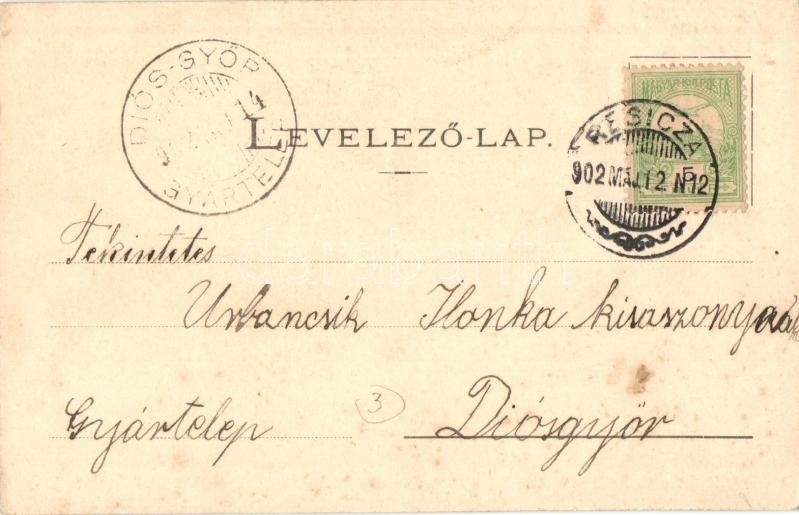 DIÓS-GYŐR
14
GYÁRTELEP
MAGYAR KIR. POSTA
5
RESICZA
902 MÁJ 12 N12
LEVELEZŐ-LAP.
Tekintetes
Urbancsik Ilonka kisaszonynak
Gyártelep 3 Diósgyőr
darabanth